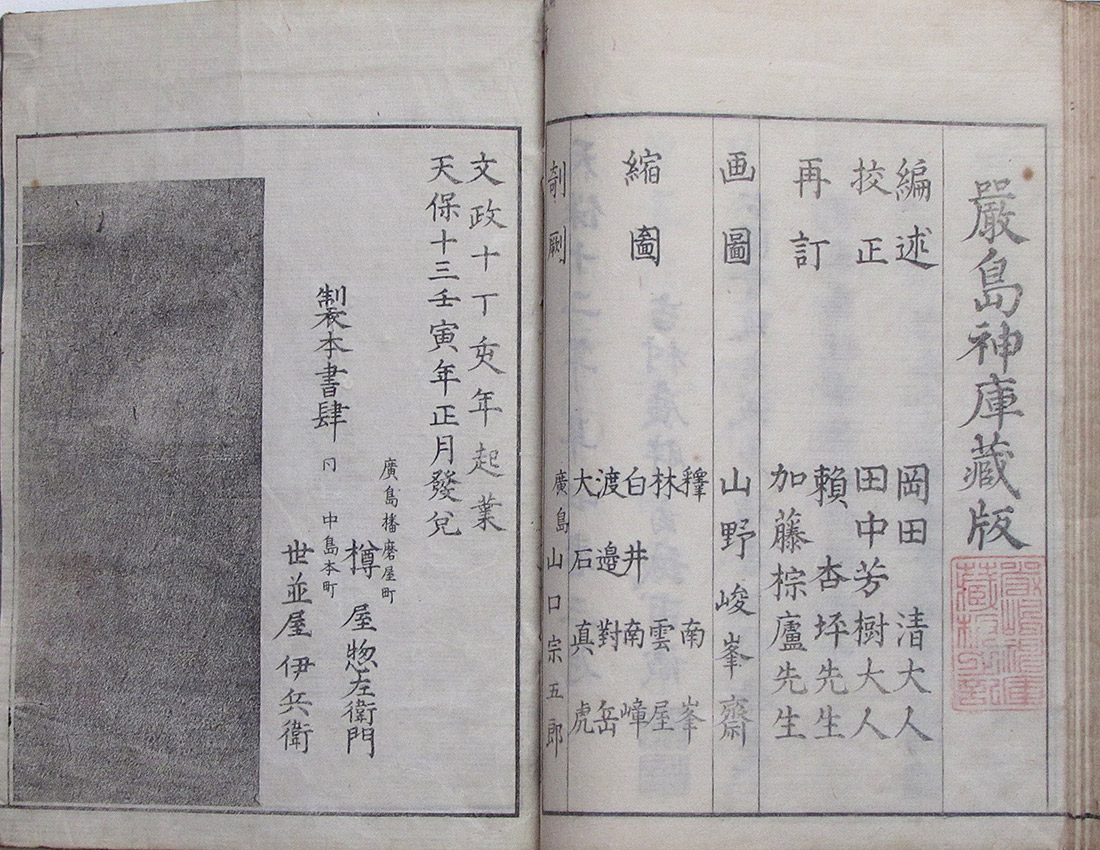 嚴島神庫藏版
編述 岡田 清大人
校正 田中芳樹大人
再訂 賴 杏坪先生
加藤棕廬先生
画圖 山野峻峯齋
縮圖 釋 南峯
林 雲屋
白井南嶂
渡邉對岳
大石真虎
剞劂 廣島 山口宗五郎
文政十丁亥年起業
天保十三壬寅年正月發兌
製本書肆 廣島播磨屋町 樽屋惣左衛門
同 中島本町 世並屋伊兵衛